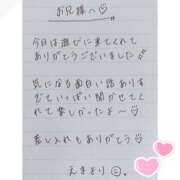 お兄様へ♡
今日は遊びに来てくれて
ありがとうございました
気になる面白い話ありす
ぎていっぱい聞かせてく
れて楽しかったよ〜♡
差し入れもありがとう
えまより